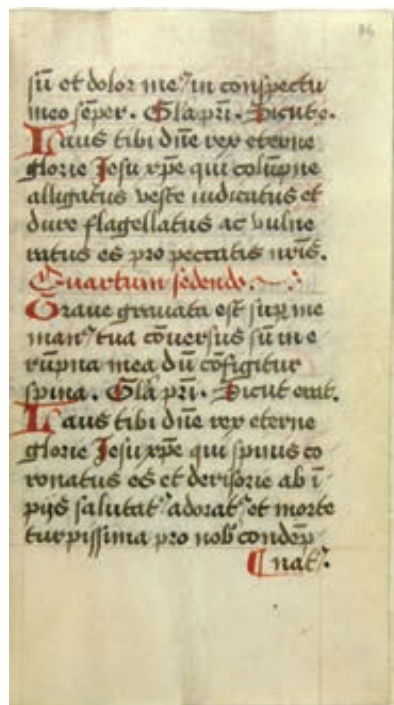 86
sū et dolor me᾿ in conspectu
meo sēper. Gla pri. Sicut e.
Laus tibi dn̄e rex eterne
glorie Jesu xp̄e qui colūpne
alligatus veste nudatus et
dure flagellatus ac vulne
ratus es pro peccatis nr̄is.
Quartum sedendo.
Grave gravata est sup me
man᾿ tua cōversus sū in e
rūpna mea dū cōfigitur
spina. Gla pri. Sicut erat.
Laus tibi dn̄e rex eterne
glorie Jesu xp̄e qui spinis co
ronatus es et derisorie ab ī
pijs salutat᾿ adorat᾿ et morte
turpissima pro nob᾿ condēp
nat᾿.